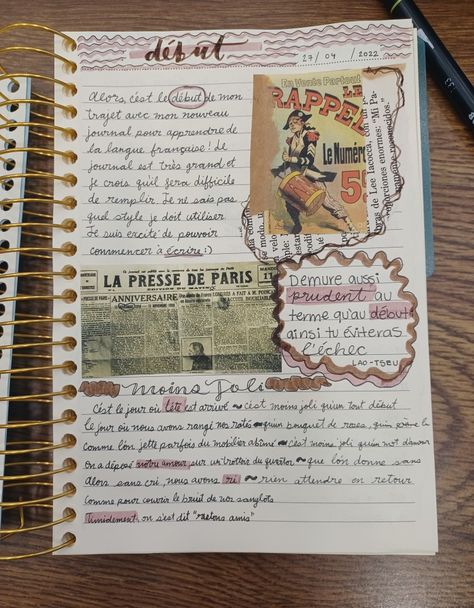 début
27/04/2022
Alors, c'est le début de mon
trajet avec mon nouveau
journal pour apprendre de
la langue française! Le
journal est très grand et
je crois qu'il sera difficile
de remplir. Je ne sais pas
quel style je doit utiliser.
Je suis excité de pouvoir
commencer à écrire :)
En Vente Partout
LE
RAPPEL
Le Numéro
5
bras de Lee Iacocca, con un p
porciones enormes: "Mi Pa
LA PRESSE DE PARIS
ANNIVERSAIRE
Demure aussi
prudent au
terme qu'au début
ainsi tu éviteras
l'échec
LAO-TSEU
Moins Joli
C'est le jour où l'été est arrivé ~ c'est moins joli qu'un tout début
Le jour où nous avons rangé nos rôtés ~ qu'un bouquet de roses, qu'on
Comme l'on jette parfois du mobilier abîmé ~ c'est moins joli qu'un mot d'amour
On a déposé notre amour sur un trottoir du quartier ~ que l'on donne sans
Alors sans cri, nous avons ri ~ rien attendre en retour
Comme pour couvrir le bruit de nos sanglots
Timidement on s'est dit "restons amis"